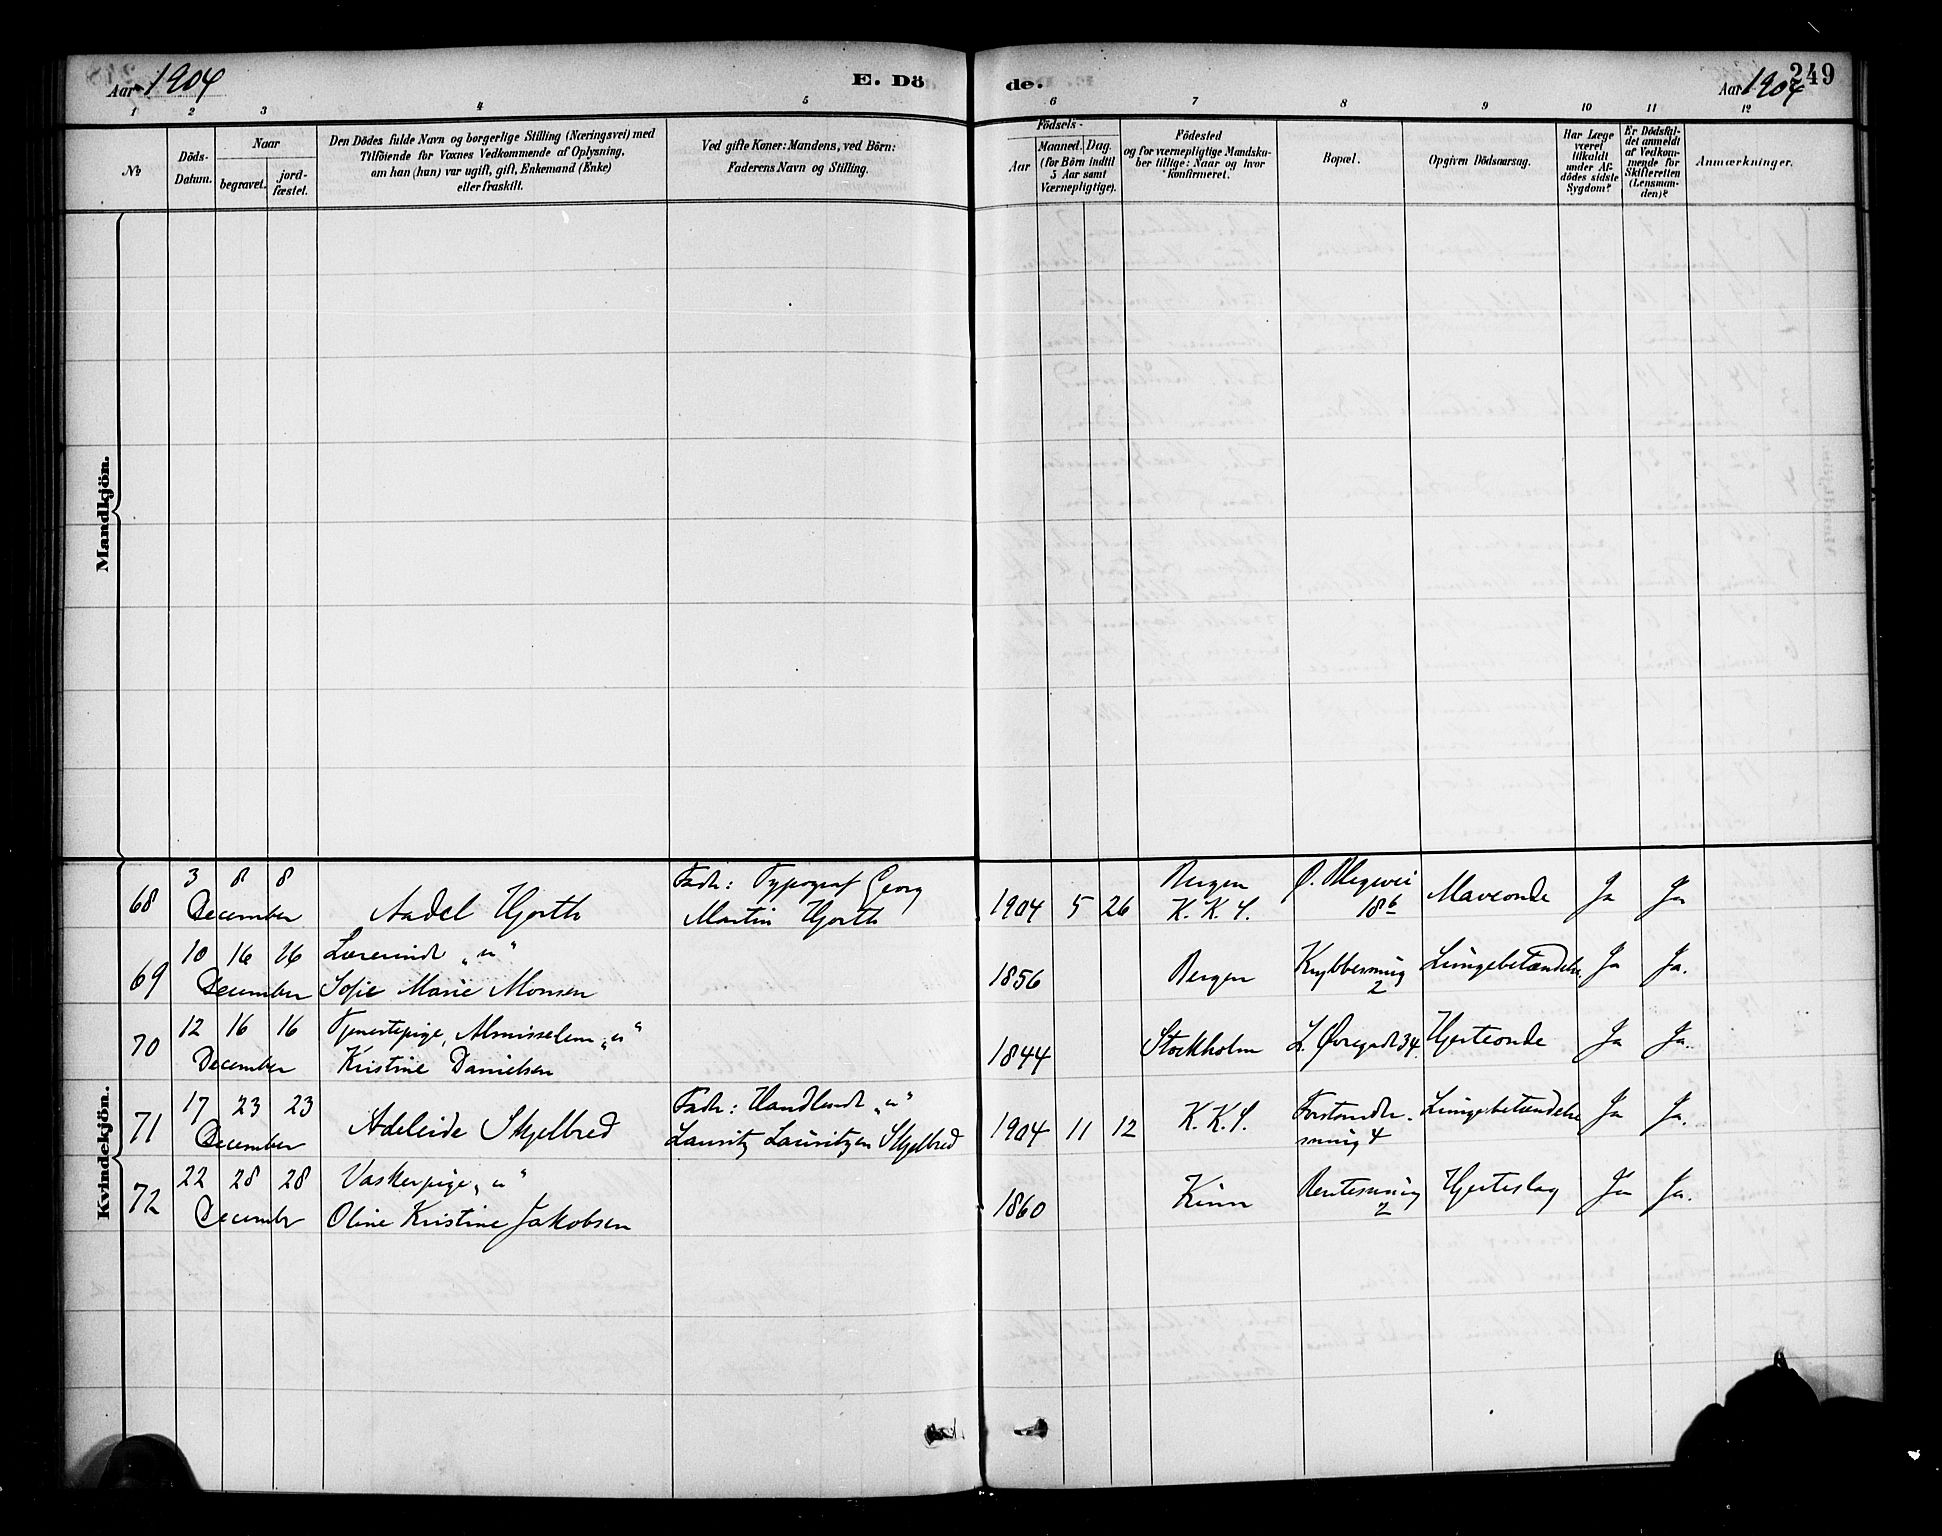 Aar 1904
E. Dö
de.
Aar 1904
249
1 2 3 4 5 6 7 8 9 10 11 12
№
Döds-
Datum.
Naar
begravet.
jord-
fæstet.
Den Dödes fulde Navn og borgerlige Stilling (Næringsvei) med
Tilföiende for Voxnes Vedkommende af Oplysning,
om han (hun) var ugift, gift, Enkemand (Enke)
eller fraskilt.
Ved gifte Koner: Mandens, ved Börn:
Faderens Navn og Stilling.
Födsels-
Aar
Maaned. Dag.
(for Börn indtil
5 Aar samt
Værnepligtige).
Födested
og for værnepligtige Mandska-
ber tillige: Naar og hvor
konfirmeret.
Bopæl.
Opgiven Dödsaarsag.
Har Læge
været
tilkaldt
under Af-
dödes sidste
Sygdom?
Er Dödsfal-
det anmeldt
af Vedkom-
mende for
Skifteretten
(Lensman-
den)?
Anmærkninger.
Mandkjön.
Kvindekjön.
68 3 8 8
December
Aadel Hjorth
Fadr: Typograf Georg
Martin Hjorth
1904 5 26
Bergen
K. K. S.
Ø. Blegevei
18 b
Maveonde
Ja
Ja
69 10 16 16
December
Lærerinde "u"
Sofie Marie Monsen
1856
Bergen
Krybbesmug
2
Lungebetændelse
Ja
Ja.
70 12 16 16
December
Tjenestepige, Almisselem "u"
Kristine Danielsen
1844
Stockholm
L. Øvregade 34.
Hjerteonde
Ja
Ja.
71 17 23 23
December
Adeleide Skjelbred
Fadr: Handlende "u"
Lauritz Lauritzen Skjelbred
1904 11 12
K. K. S.
Forstander-
smug 4
Lungebetændelse
Ja
Ja.
72 22 28 28
December
Vaskerpige "u"
Oline Kristine Jakobsen
1860
Kinn
Rentesmug
2
Hjerteslag
Ja
Ja.